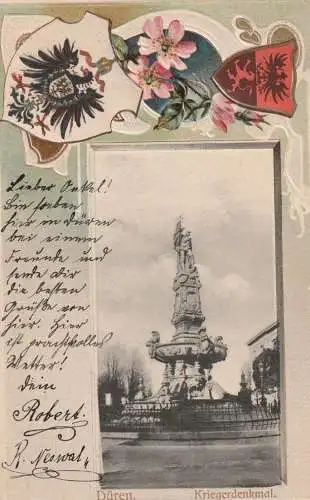 Lieber Onkel!
Bin soeben
hier in Düren
bei einem
Freunde und
sende Dir
die besten
Grüße von
hier. Hier
ist prachtvolles
Wetter!
Dein
Robert.
R.
Düren.
Kriegerdenkmal.